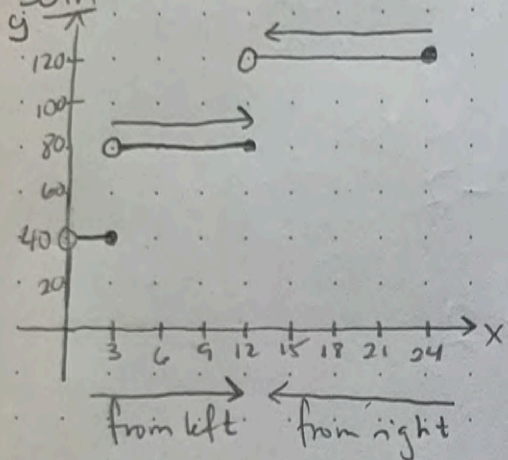 y
120
100
80
60
40
20
3 6 9 12 15 18 21 24 X
from left from right